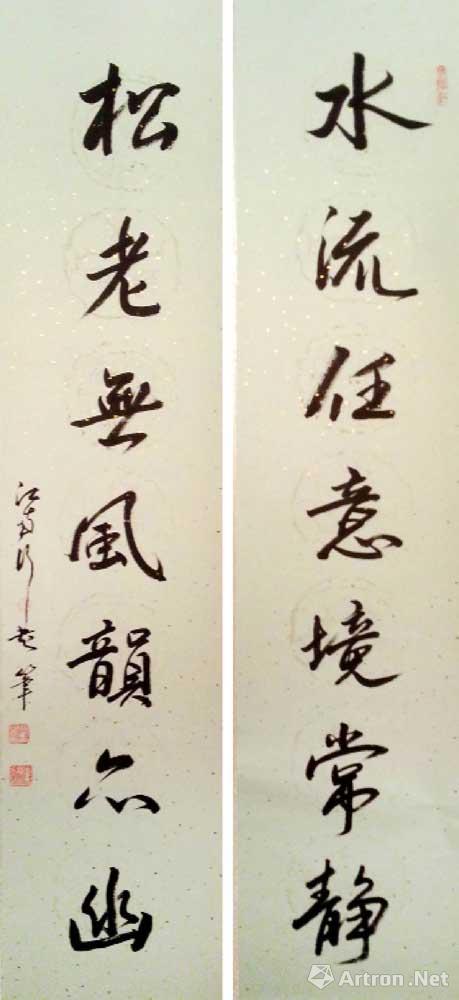 水流任意境常静
松老無風韻亦幽
Artron.Net